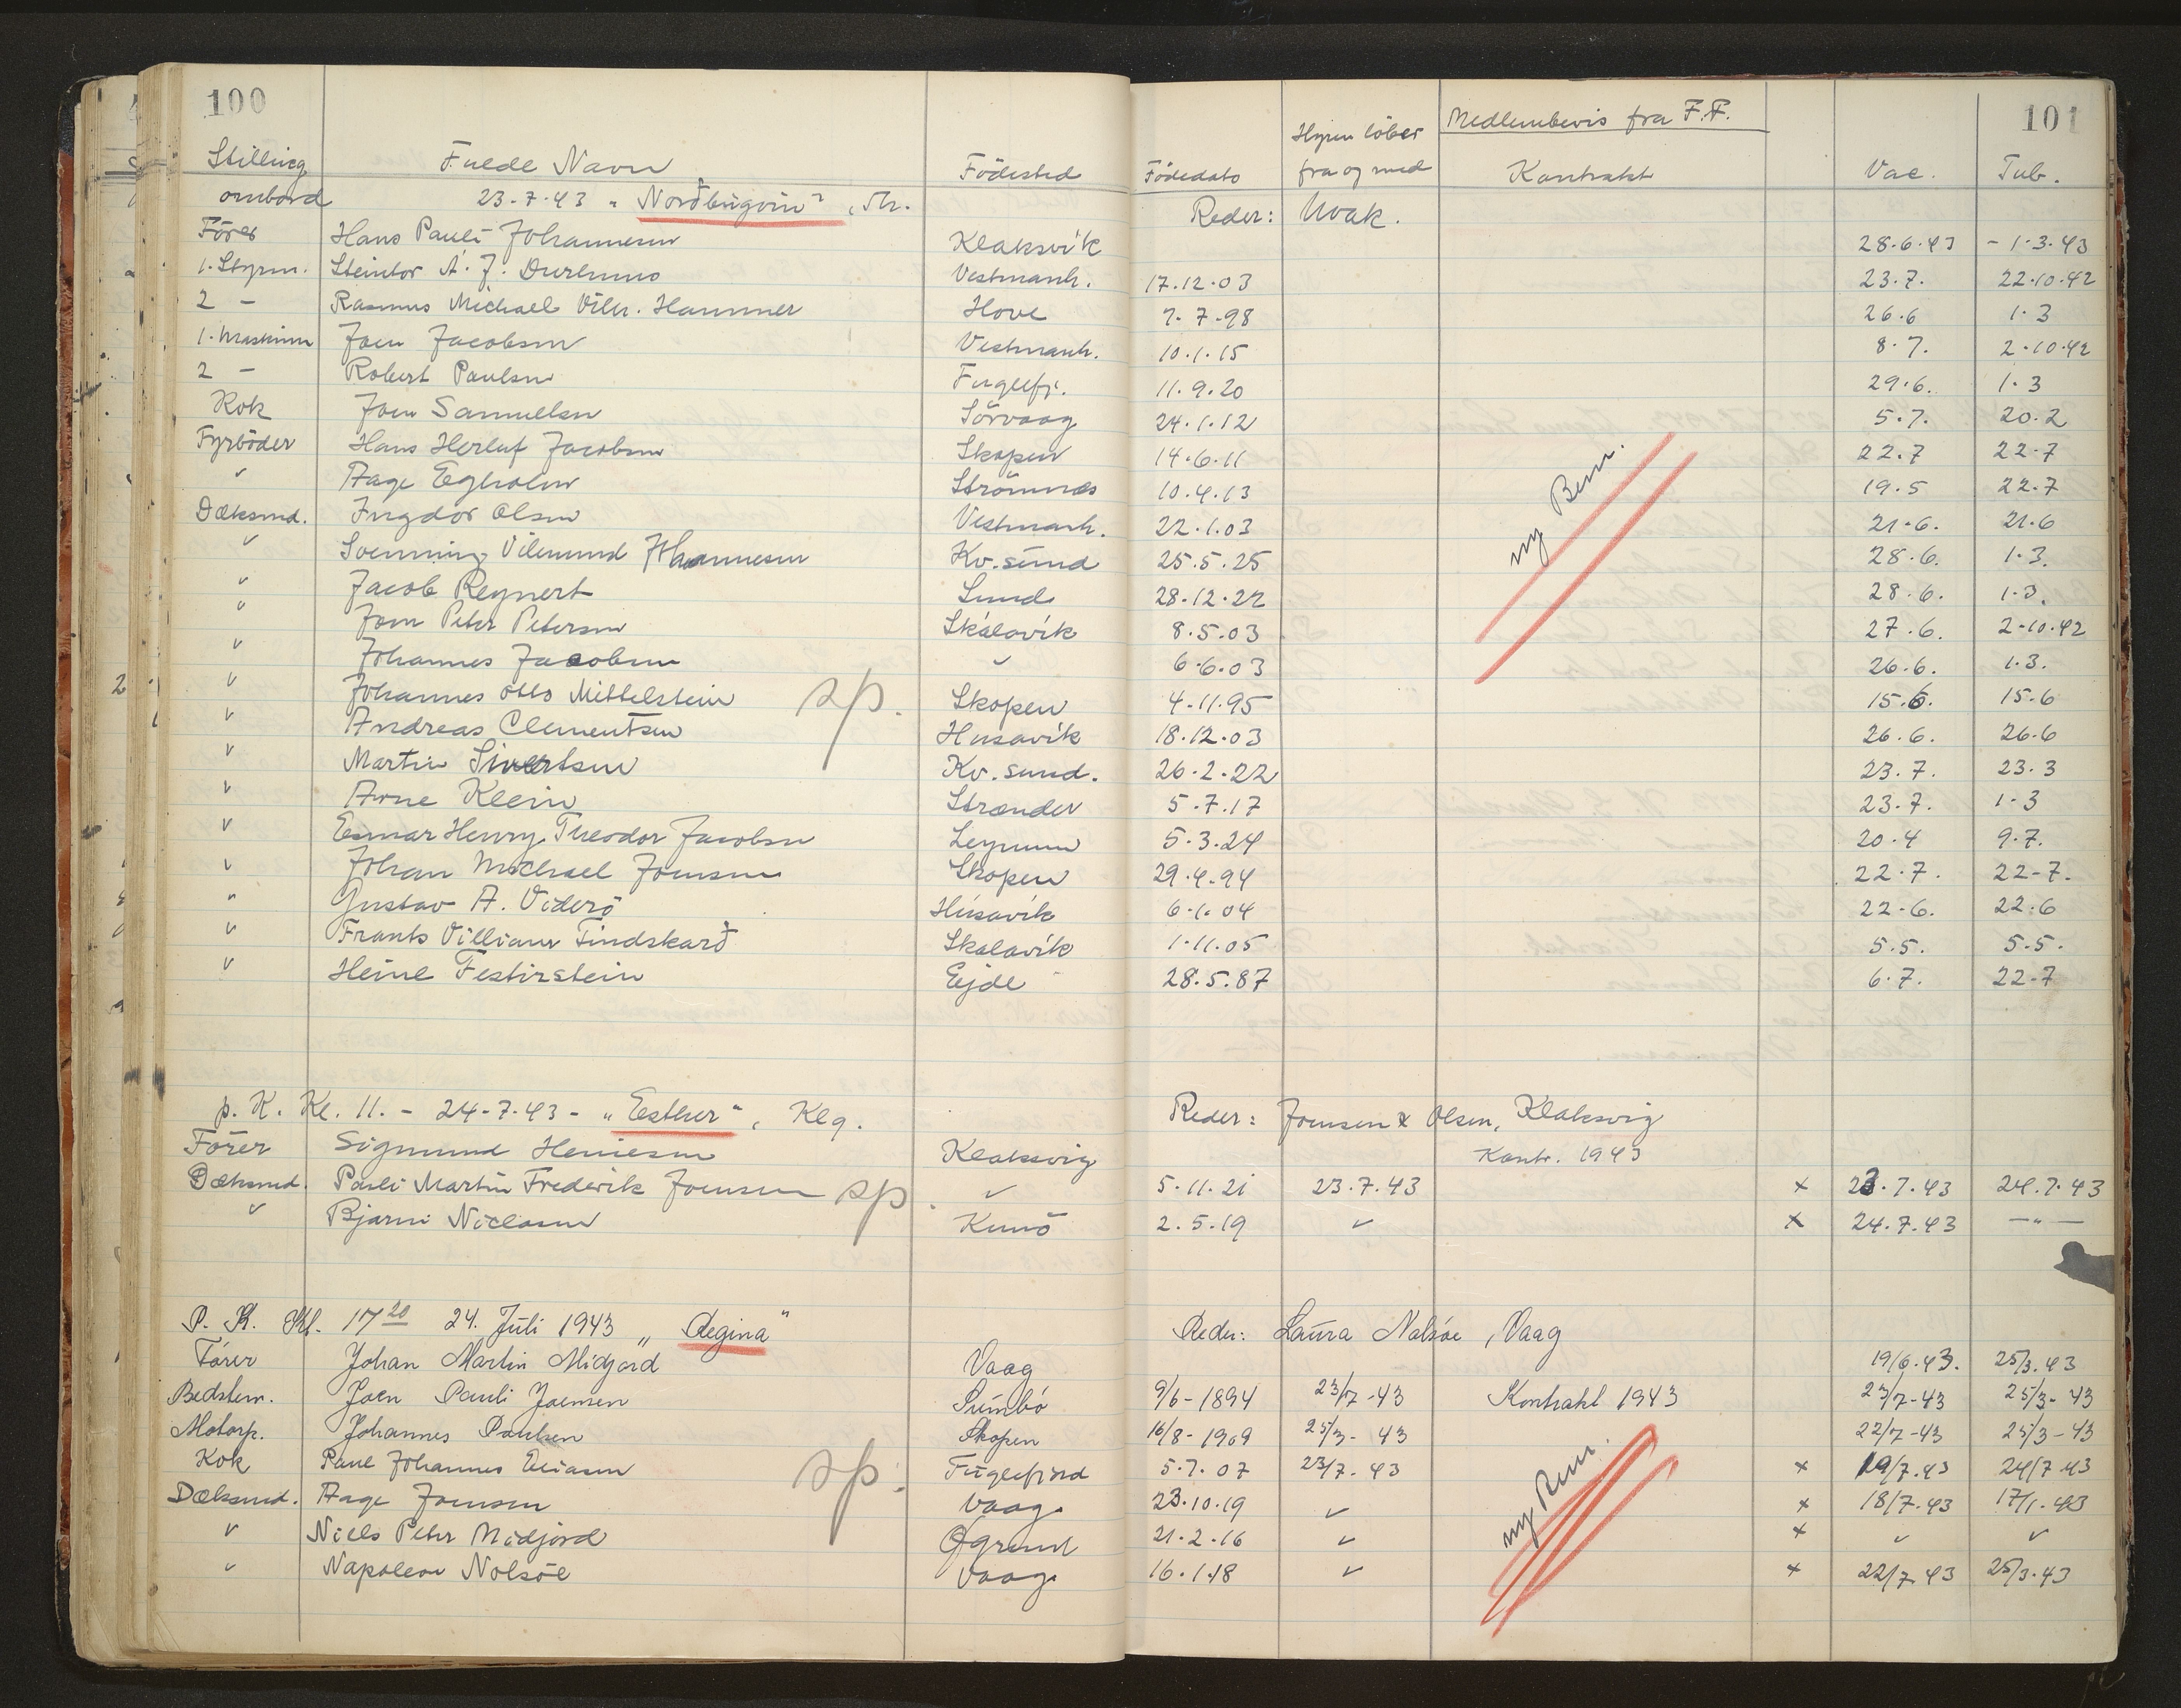 100
101
Stilling ombord Fulde Navn Födested Födedato Hyren löber fra og med Medlemsbevis fra F.F. Kontrakt Vac. Tub.
23-7-43 "Nordbúgvin", Th. Reder: Hvak.
Förer Hans Pauli Johannesen Klaksvík 28.6.43 - 1.3.43
1. Styrm. Steintor A. J. Durhuus Vestmanh. 17.12.03 23.7. 22.10.42
2 - Rasmus Michael Vilh. Hammer Hove 7.7.98 26.6 1.3
1. Maskinm Joen Jacobsen Vestmanh. 10.1.15 8.7. 2.10.42
2 - Robert Paulsen Fuglefj. 11.9.20 29.6. 1.3
Kok Joen Samuelsen Sörvaag 24.1.12 5.7. 20.2
Fyrböder Hans Herluf Jacobsen Skopen 14.6.11 22.7 22.7
" Aage Egholm Strömnæs 10.4.13 19.5 22.7
Dæksmd. Ingdor Olsen Vestmanh. 22.1.03 21.6. 21.6
" Svenning Vilmund Johannesen Kv.sund 25.5.25 28.6. 1.3.
" Jacob Reynert Sund 28.12.22 28.6. 1.3.
" Joen Peter Petersen Skálavík 8.5.03 27.6. 2-10.42
" Johannes Jacobsen " 6.6.03 26.6. 1.3.
" Johannes Otto Mittelstein Skopen 4.11.95 15.6. 15.6
" Andreas Clementsen Húsavík 18.12.03 26.6. 26.6
" Martin Sivertsen Kv.sund. 26.2.22 23.7. 23.3
" Arne Klein Strænder 5.7.17 23.7. 1.3
" Esmar Henry Theodor Jacobsen Leynum 5.3.24 20.4 9.7.
" Johan Michael Joensen Skopen 29.4.94 22.7. 22-7.
" Gustav A. Viderö Húsavík 6.1.04 22-6. 22.6
" Frants Villiam Tindskard Skálavík 1.11.05 5.5. 5.5.
" Heine Festirstein Ejde 28.5.87 6.7. 22-7
sp.
ny Bem.
p. K. Kl. 11. - 24-7-43 - "Esther", Klg. Reder: Joensen & Olsen, Klaksvig
Förer Sigmund Heinesen Klaksvig Kontr. 1943
Dæksmd. Pauli Martin Frederik Joensen sp. " 5.11.21 23.7.43 x 23.7.43 24.7.43
" Bjarni Niclasen Kunö 2.5.19 " x 24.7.43 -"-
P. K. Kl. 17 20 24. Juli 1943 "Regina" Reder: Laura Nolsöe, Vaag
Förer Johan Martin Midjord Vaag 19/6.43. 25/3.43
Bedstem. Joen Pauli Joensen Sumbö 9/6-1894 23/7-43 Kontrakt 1943 23/7-43 25/3-43
Motorp. Johannes Poulsen Skopen 16/8-1909 25/3-43 22/7-43 25/3-43
Kok Paul Johannes Eliasen sp. Fuglefjord 5.7.07 23/7.43 x 19/7.43 24/7 43
Dæksmd. Aage Joensen Vaag 23.10.19 " x 18/7.43 17/1.43
" Niels Peter Midjord 21.2.16 " x " "
" Napoleon Nolsöe Vaag 16.1.18 " x 22/7.43 25/3.43
ny Bem.